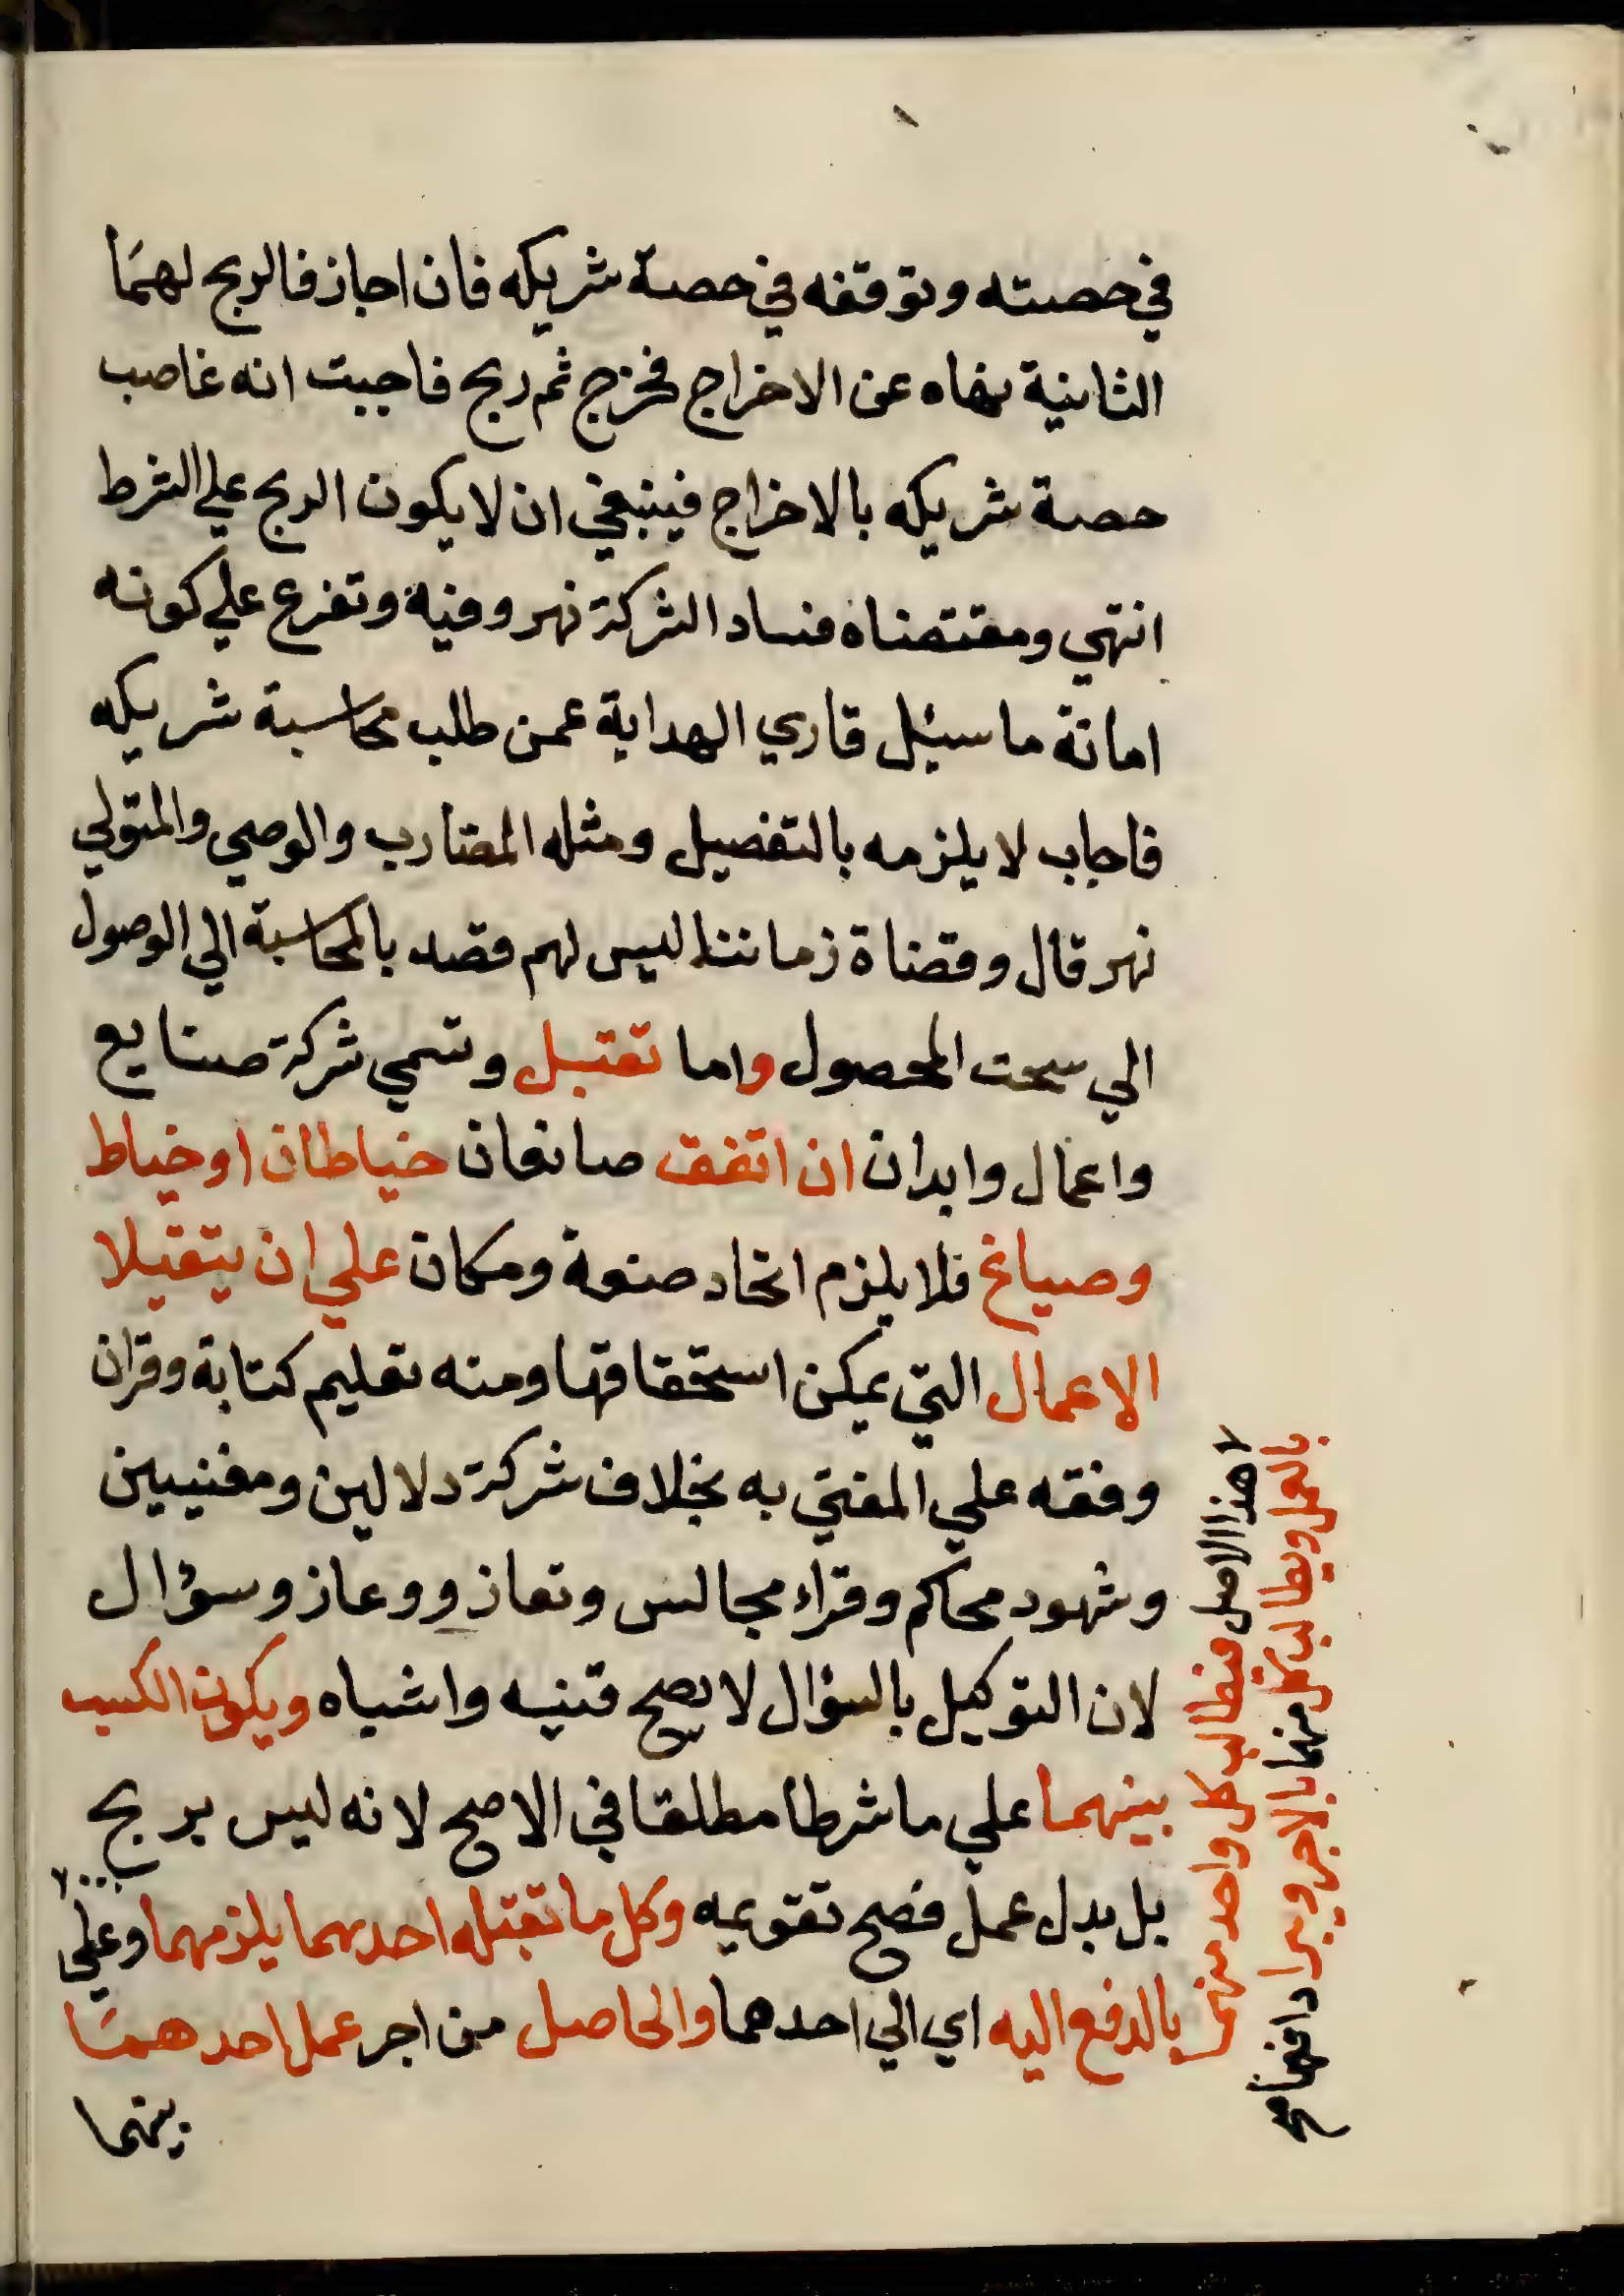 في حصته وتوقفه في حصة شريكه فان اجاز فالربح لهما
الثانية نهاه عن الاخراج فخرج ثم ربح فاجبت انه غاصب
حصة شريكه بالاخراج فينبغي ان لا يكون الربح علي الشرط
انتهي ومقتضاه فساد الشركة نهر وفيه وتفرع علي كونه
امانة ما سئل قاري الهداية عمن طلب محاسبة شريكه
فاجاب لا يلزمه بالتفصيل ومثله المضارب والوصي والمتولي
نهر قال وقضاة زماننا ليس لهم قصد بالمحاسبة الي الوصول
الي سحت المحصول واما تقبل وتسمي شركة صنايع
واعمال وابدان ان اتفق صانعان خياطان او خياط
وصباغ فلا يلزم اتحاد صنعة ومكان علي ان يتقبلا
الاعمال التي يمكن استحقاقها ومنه تعليم كتابة وقران
وفقه علي المفتي به بخلاف شركة دلالين ومغنيين
وشهود محاكم وقراء مجالس وتعاز ووعاز وسؤال
لان التوكيل بالسؤال لا يصح قنيه واشباه ويكون الكسب
بينهما علي ما شرطا مطلقا في الاصح لانه ليس بربح
بل بدل عمل فصح تقويمه وكل ما تقبله احدهما يلزمهما وعلي
بالدفع اليه اي الي احدهما والحاصل من اجر عمل احدهما
بينهما
هذا الاصل فيطالب كل واحد منهما
بالعمل ويطالب كل منهما بالاجر ويبرا دافعها صح